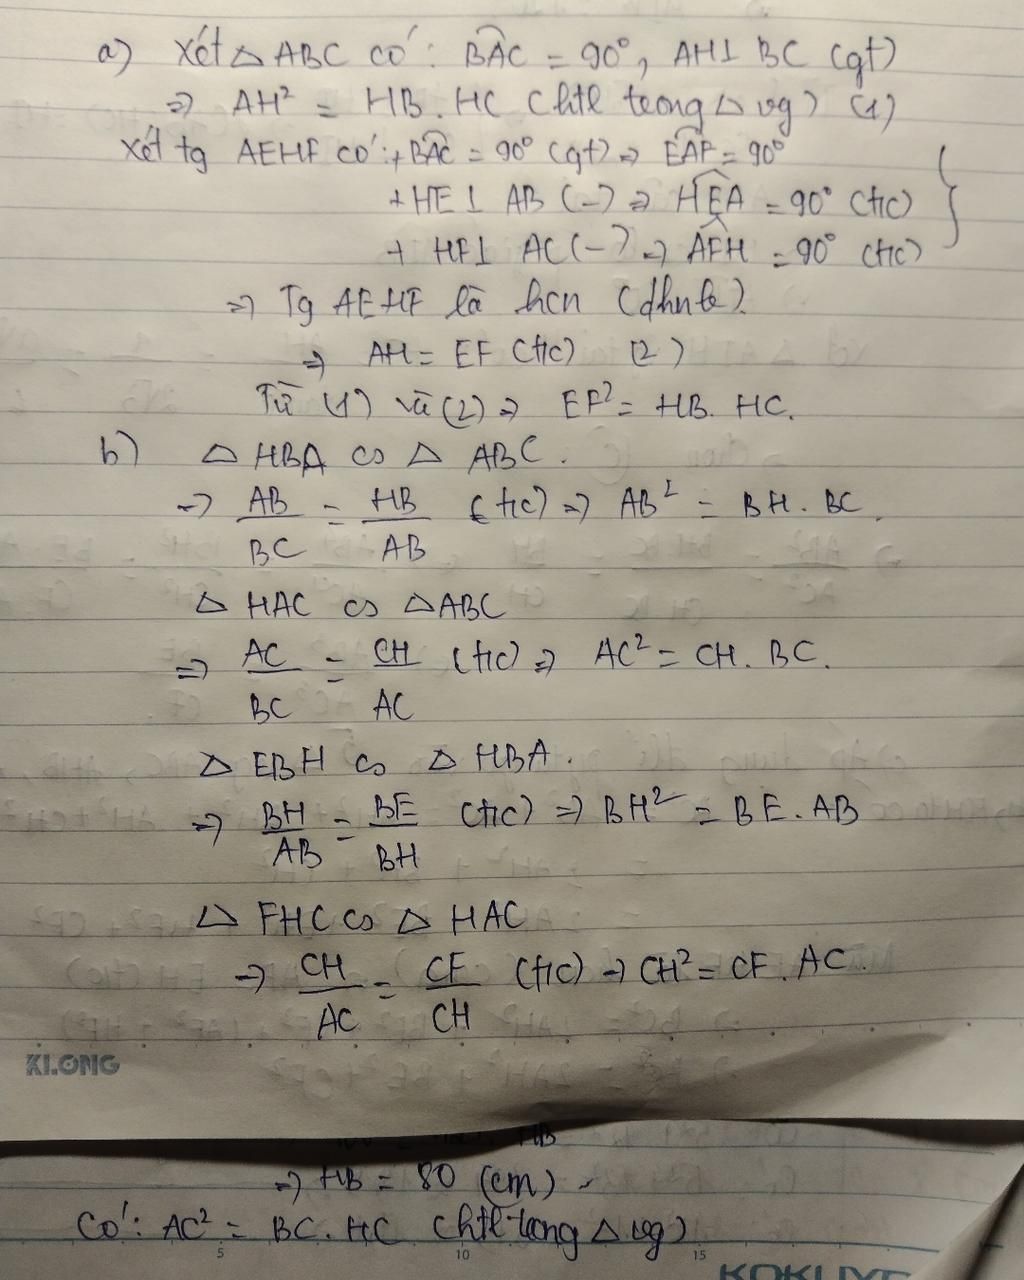 a) Xét △ ABC có: BAC = 90°, AH⊥ BC (gt)
=> AH² = HB. HC (htl trong △ vg) (1)
Xét tg AEHF có: + BAC = 90° (gt) => EAF = 90°
+ HE ⊥ AB (-) => HEA = 90° (t/c)
+ HF⊥ AC (-) => AFH = 90° (t/c)
=> Tg AEHF là hcn (dhnb).
=> AH = EF (t/c) (2)
Từ (1) và (2) => EF² = HB. HC.
b) △ HBA ∽ △ ABC.
=> AB/BC = HB/AB (t/c) => AB² = BH. BC.
△ HAC ∽ △ABC
=> AC/BC = CH/AC (t/c) => AC² = CH. BC.
△ EBH ∽ △ HBA.
=> BH/AB = BE/BH (t/c) => BH² = BE. AB
△ FHC ∽ △ HAC
=> CH/AC = CF/CH (t/c) => CH² = CF. AC.
KLONG
HB
=> HB = 80 (cm)
Có: AC² = BC. HC (htl trong △ vg)
5 10 15
KOKUYO